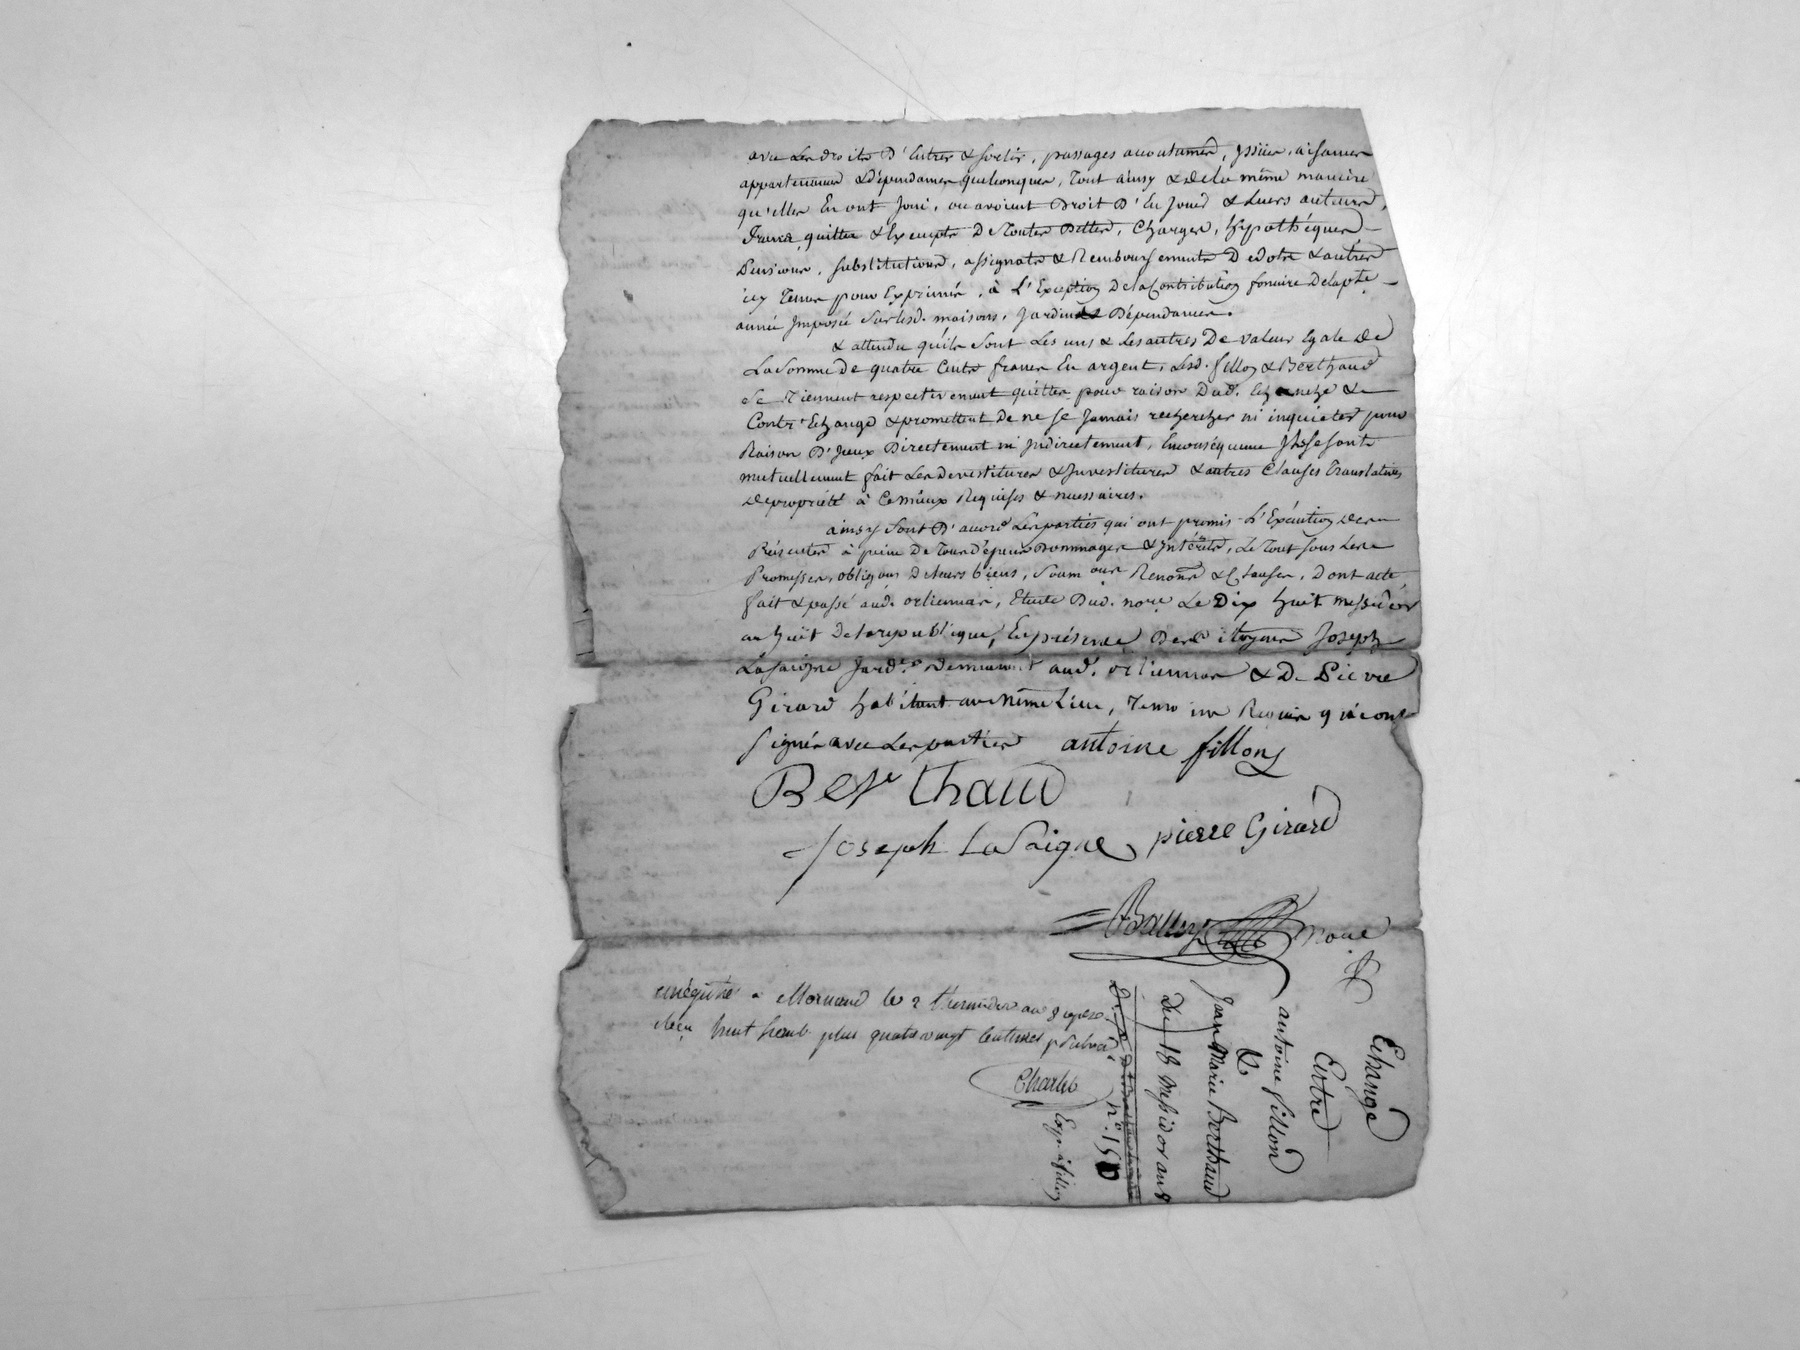 avec les droits d'entrer & sortir, passages accoutumés, yssües, aisances
appartenances & dépendances quelconques, tout ainsy & de la même manière
qu'elles en ont joui, ou avoient droit d'en jouir & leurs auteurs,
francs, quittes & exempts de toutes dettes, charges, hypothéques
pensions, substitutions, assignats & remboursements de dots & autres
icy tenus pour exprimés, à l'exception de la contribution fonciere de la pnte
année imposée sur lesd. maisons, jardins & dépendances.
& attendu qu'ils sont les uns & les autres de valeur egale de
la somme de quatre cents francs en argent, lesd. fillon & Berthaud
se tiennent respectivement quittes pour raison dud. echange &
contr'echange & promettent de ne se jamais rechercher ni inquieter pour
raison d'iceux directement ni indirectement, en conséquence ils se sont
mutuellement fait les devestitures & investitures & autres clauses translatives
de propriété à ce mieux requises & necessaires.
ainsy sont d'accord les parties qui ont promis l'exécution des
présentes à peine de tous dépens dommages & intérêts, le tout sous les
promesses, obligons de leurs biens, soumons renons & clauses, dont acte
fait & passé aud. orliennas, etude dud. nore le dix huit messidor
an huit de la republique, en présence des citoyens Joseph
Lasaigne jardr demeurant aud. orliennas & de Pierre
Girard habitant au même lieu, temoins requis qui ont
signés avec les parties antoine fillon
Berthaud
Joseph LaSaigne pierre Girard
Bally nore
enrégistré a Mornand le 2 thermidor an 8 reçu
huit francs plus quatre vingt centimes pr subvon
Charlet
Echange
Entre
antoine fillon
&
Jean Marie Berthaud
du 18 Messidor an 8
n°. 150
Exp. à fillon